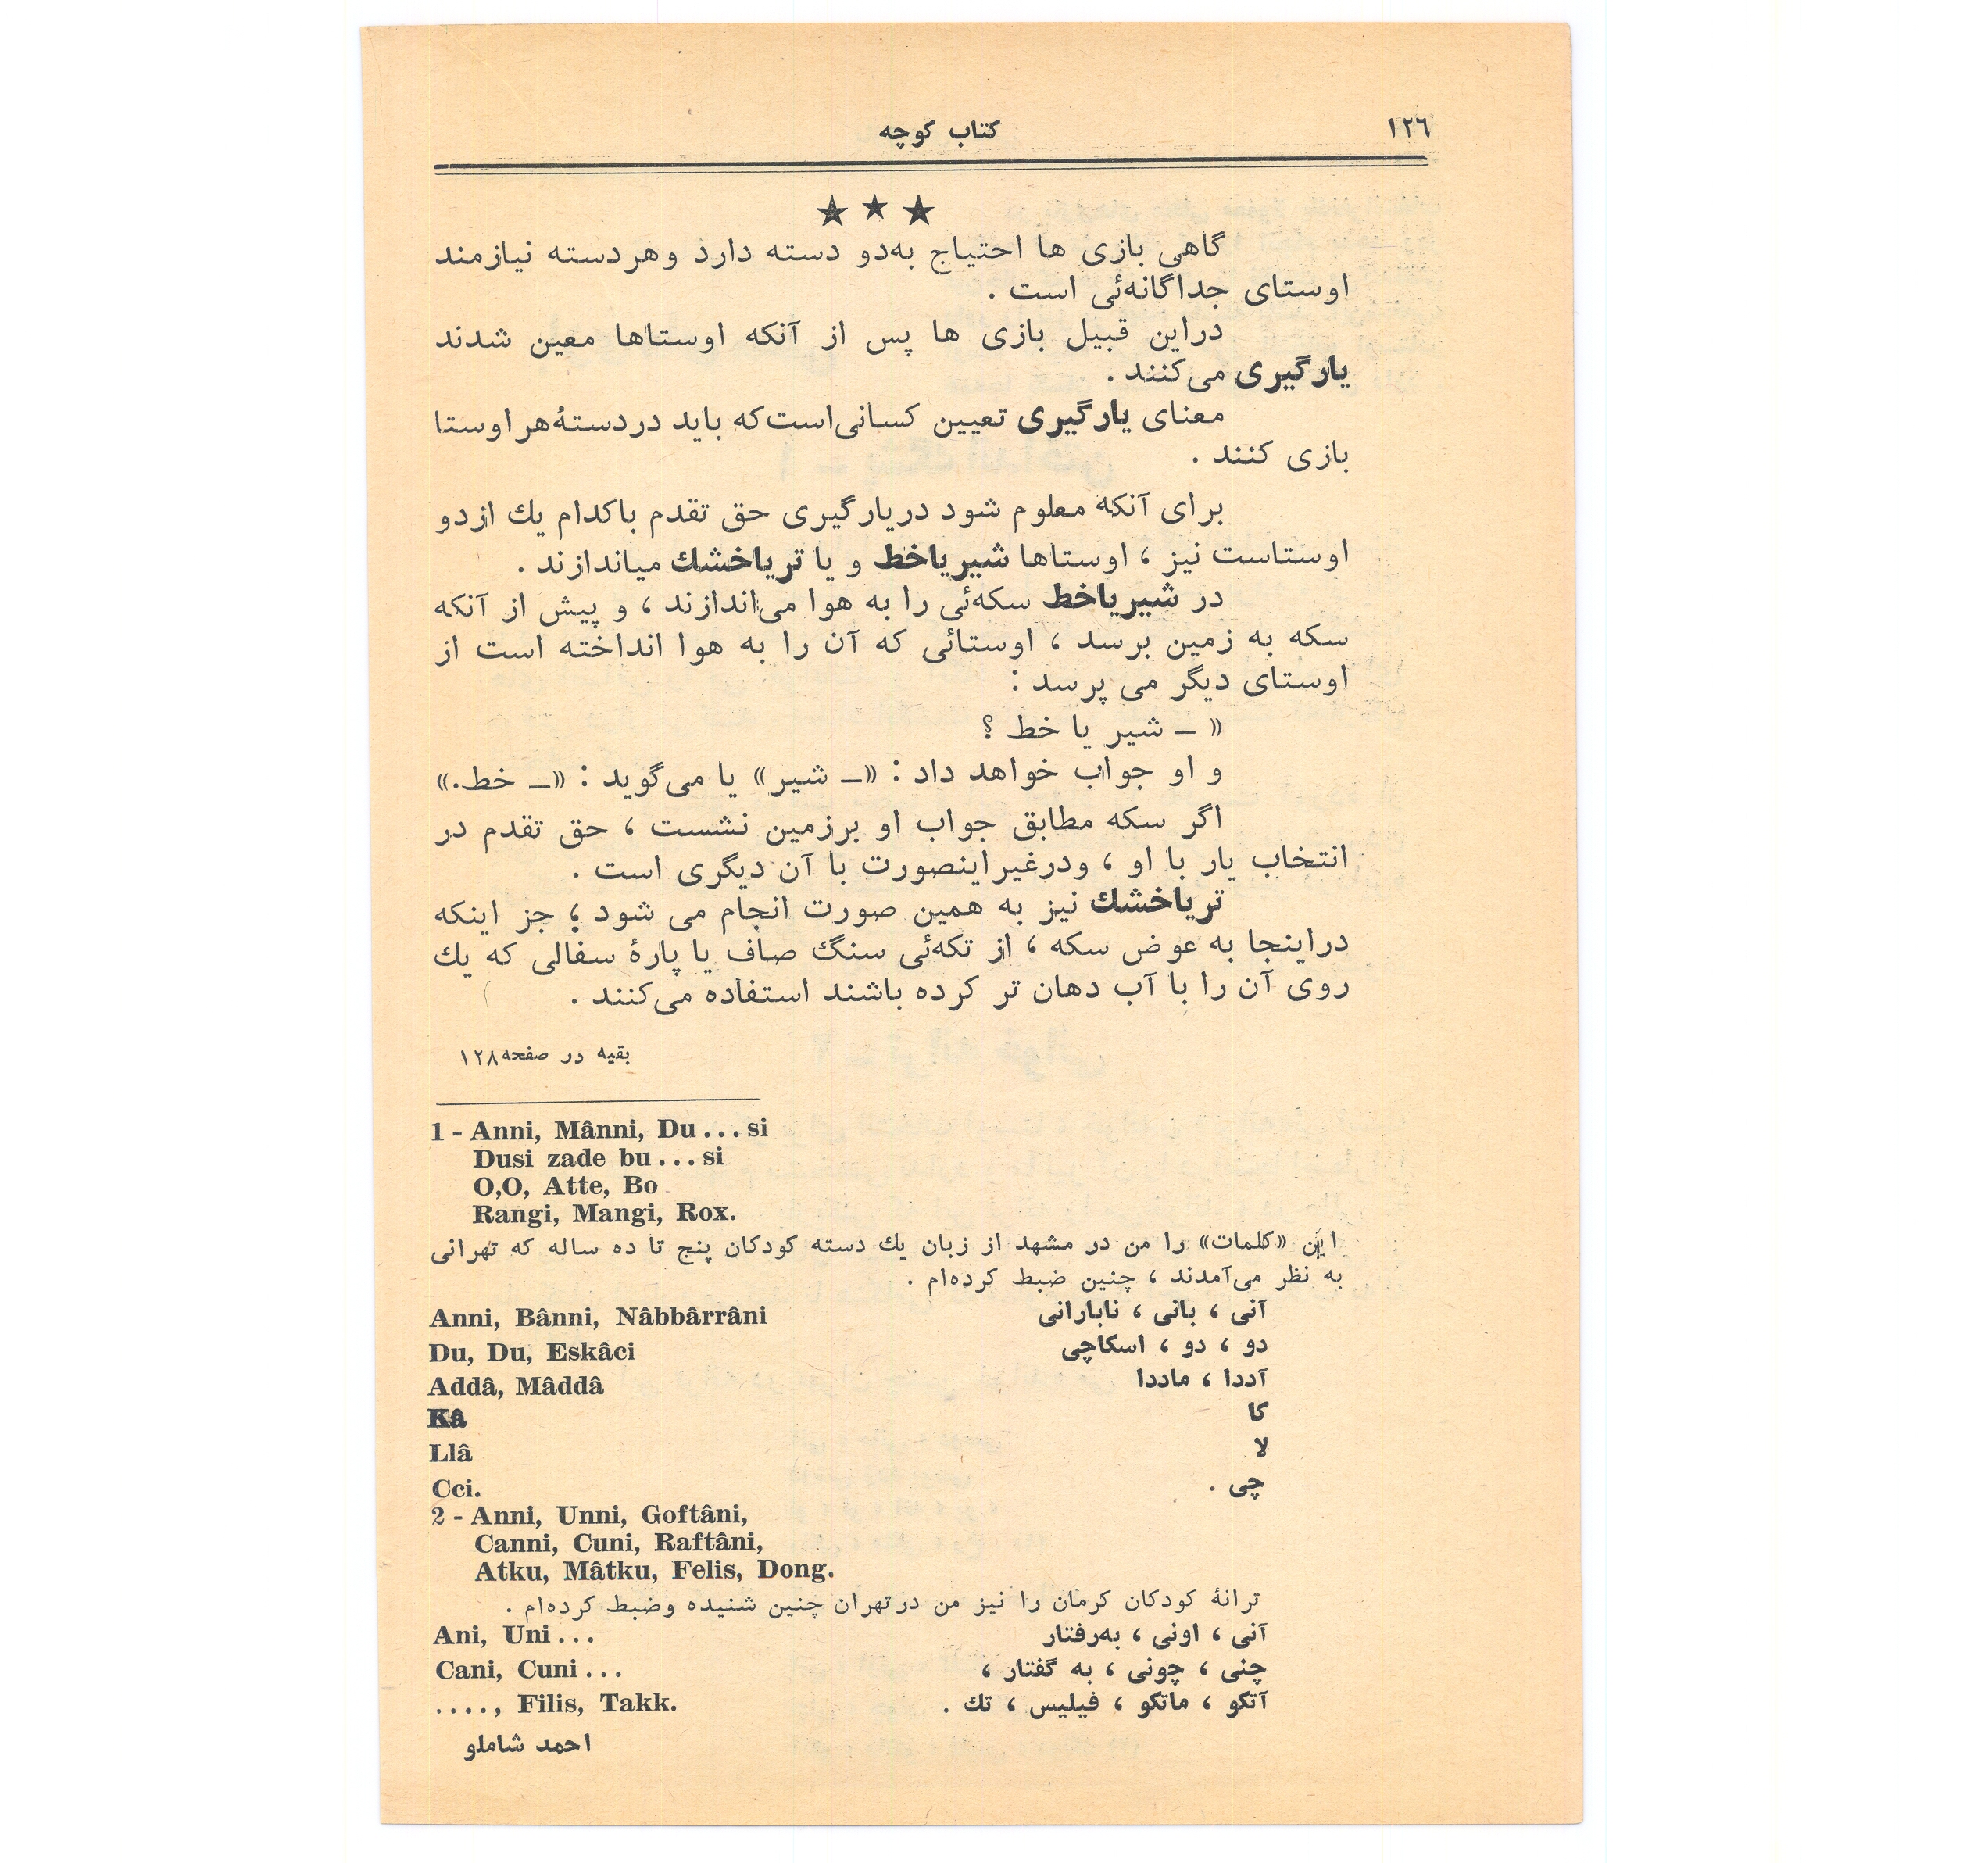 ۱۲٦
کتاب کوچه
★ ★ ★
گاهی بازی ها احتیاج به‌دو دسته دارد وهردسته نیازمند
اوستای جداگانه‌ئی است .
دراین قبیل بازی ها پس از آنکه اوستاها معین شدند
یارگیری می‌کنند .
معنای یارگیری تعیین کسانی‌است‌که باید دردستهٔ‌هراوستا
بازی کنند .
برای آنکه معلوم شود دریارگیری حق تقدم باکدام یك ازدو
اوستاست نیز ، اوستاها شیریاخط و یا تریاخشك میاندازند .
در شیریاخط سکه‌ئی را به هوا می‌اندازند ، و پیش از آنکه
سکه به زمین برسد ، اوستائی که آن را به هوا انداخته است از
اوستای دیگر می پرسد :
« – شیر یا خط ؟
و او جواب خواهد داد : «– شیر» یا می‌گوید : «– خط.»
اگر سکه مطابق جواب او برزمین نشست ، حق تقدم در
انتخاب یار با او ، ودرغیراینصورت با آن دیگری است .
تریاخشك نیز به همین صورت انجام می شود ؛ جز اینکه
دراینجا به عوض سکه ، از تکه‌ئی سنگ صاف یا پارهٔ سفالی که یك
روی آن را با آب دهان تر کرده باشند استفاده می‌کنند .
بقیه در صفحه۱۲۸
1 - Anni, Mânni, Du...si
Dusi zade bu...si
O,O, Atte, Bo
Rangi, Mangi, Rox.
این «کلمات» را من در مشهد از زبان یك دسته کودکان پنج تا ده ساله که تهرانی
به نظر می‌آمدند ، چنین ضبط کرده‌ام .
آنی ، بانی ، نابارانی Anni, Bânni, Nâbbârrâni
دو ، دو ، اسکاچی Du, Du, Eskâci
آددا ، ماددا Addâ, Mâddâ
کا Kâ
لا Llâ
چی . Cci.
2 - Anni, Unni, Goftâni,
Canni, Cuni, Raftâni,
Atku, Mâtku, Felis, Dong.
ترانهٔ کودکان کرمان را نیز من درتهران چنین شنیده وضبط کرده‌ام .
آنی ، اونی ، به‌رفتار Ani, Uni...
چنی ، چونی ، به گفتار ، Cani, Cuni...
آتکو ، ماتکو ، فیلیس ، تك . ...., Filis, Takk.
احمد شاملو